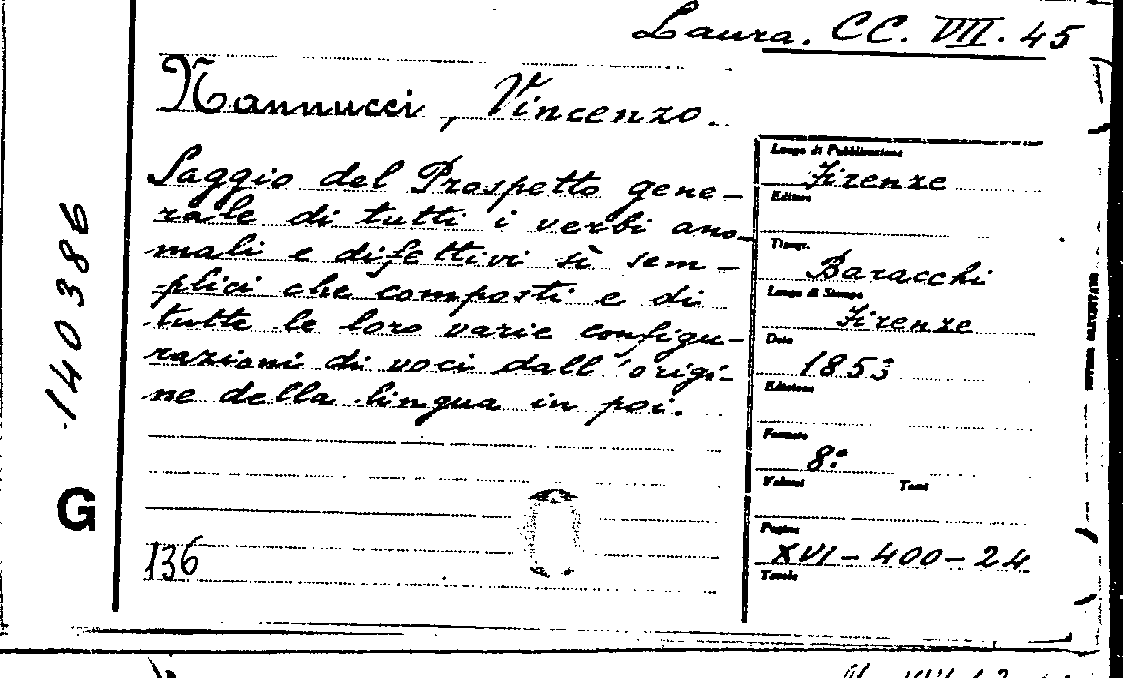 Laura. CC. VII. 45
Nannucci, Vincenzo.
Saggio del Prospetto gene-
rale di tutti i verbi ano-
mali e difettivi sì sem-
plici che composti e di
tutte le loro varie configu-
razioni di voci dall'origi-
ne della lingua in poi.
136
140386
G
Luogo di Pubblicazione
Firenze
Editore
Tipogr.
Baracchi
Luogo di Stampa
Firenze
Data
1853
Edizione
Formato
8.°
Volumi Tomi
Pagine
XVI-400-24
Tavole